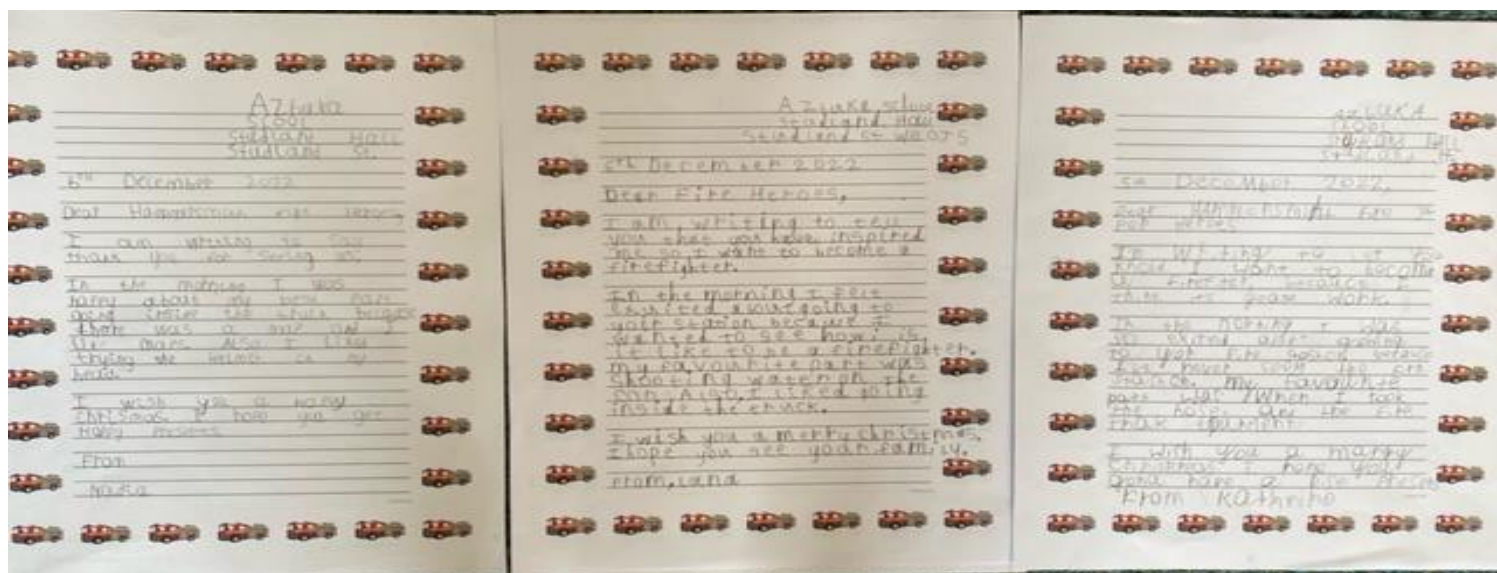 Azbuka
Scool
Studland Hall
Studland St.
6th December 2022
Dear
I am writing to say
thank you for
In the morning I was
happy about my best part
going inside the truck because
there was a and I
like maps. Also I like
trying the helmet on my
head.
I wish you a happy
Christmas. I hope you get
many presents
From
Nadia
Azbuka school
Studland Hall
Studland St. W60JS
6th December 2022
Dear Fire Heroes,
I am writing to tell
you that you have inspired
me so I want to become a
firefighter.
In the morning I felt
about going to
your station because I
wanted to see how is
it like to be a firefighter.
My favourite part was
shooting water on the
Also, I liked going
inside the truck.
I wish you a merry Christmas,
I hope you see your family.
From, Lana
AZBUKA
SCOOL
5th December 2022,
Dear Fire
heroes
I'm writing to
know I want to become
a because I
think its work.
In the morning I was
so exited
to because
I've never seen the fire
My favourite
part was when I took
the hose. and the fire
I wish you a marry
Christmas! I hope you
have a present
From Kathrine